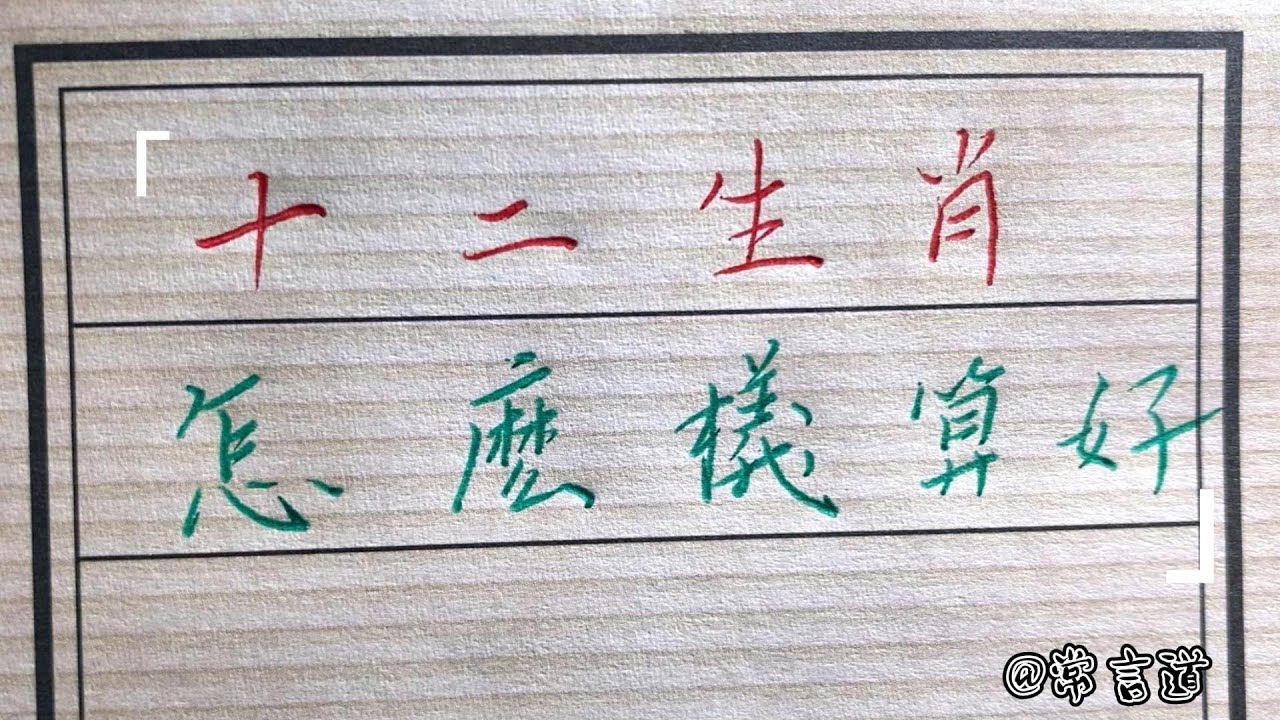 「十二生肖
怎麽樣算好」
@常言道